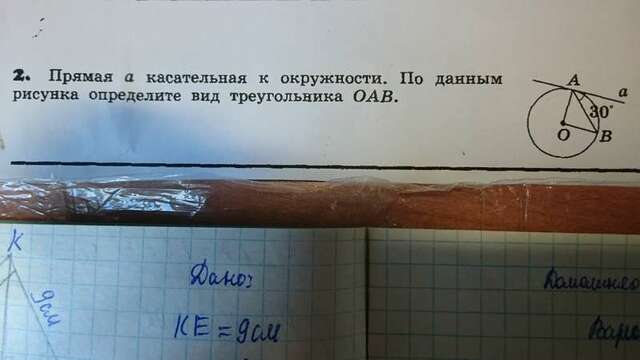 2. Прямая a касательная к окружности. По данным
рисунка определите вид треугольника OAB.
A
a
30°
O
B
K
9см
Дано:
KE = 9см